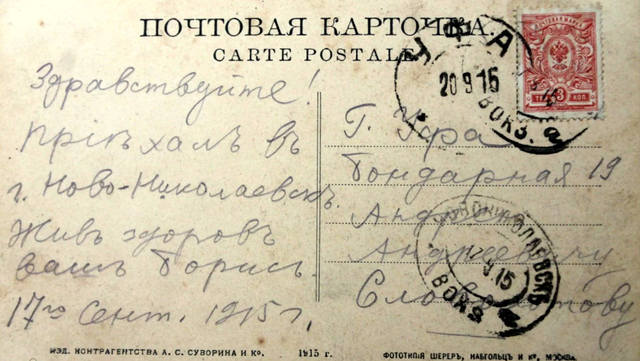 ПОЧТОВАЯ КАРТОЧКА.
CARTE POSTALE
УФА
20 9 15
ВОКЗ.
3 КОП
Здравствуйте!
Пріѣхалъ въ
г. Ново-Николаевскъ.
Живъ здоровъ
Вашъ Борисъ.
17го Сент. 1915 г.
Г. Уфа
Бондарная 19
Андрею
Андреевичу
НОВОНИКОЛАЕВСКЪ
9 15
ВОКЗ
ИЗД. КОНТРАГЕНТСТВА А. С. СУВОРИНА И Ко. 1915 г. ФОТОТИПІЯ ШЕРЕРЪ, НАБГОЛЬЦЪ И Ко, МОСКВА.